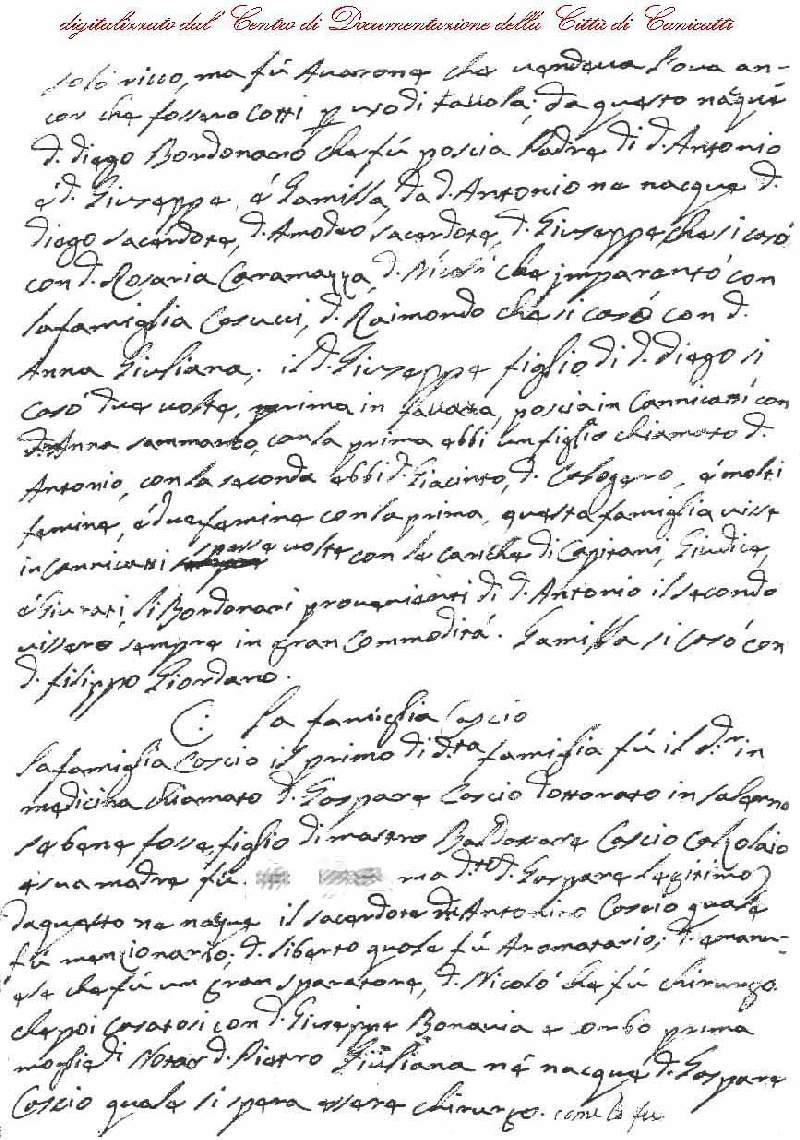 digitalizzato dal Centro di Documentazione della Città di Canicattì
solo ricco, ma fù Avarone che vendeva l'ova an-
cor che fossero cotti p uso di tavola; da questo nacque
d. diego Bordonaro che fù poscia Padre di d. Antonio
é d. Giuseppe, é Camilla, da d. Antonio ne nacque d.
diego sacerdote, d. Amodeo sacerdote, d. Giuseppe che si casò
con d. Rosaria Caramazza, d. Nicolò che imparentò con
la famiglia Cosucci, d. Raimondo che si casò con d.
Anna Giuliana. il d. Giuseppe figlio di d. diego si
casò due volte, prima in favara, poscia in Cannicatti con
d. Anna sammarco, con la prima ebbi un figlio chiamato d.
Antonio, con la seconda ebbi d. Giacinto, d. Calogero, é molti
femine, é due femine con la prima, questa famiglia visse
in Cannicatti spesse volte con le cariche di Capitani, Giudice,
é Giurati, li Bordonari provenienti di d. Antonio il secondo
vissero sempre in gran Commodità. Camilla si casò con
d. filippo Giordano.
C: La famiglia Coscio
La famiglia Coscio il primo di d.ta famiglia fù il d.r in
medicina chiamato d. Gaspare Coscio dottorato in salerno
se bene fosse figlio di mastro Baldassare Coscio Calzolaio
é sua madre fù ma d.to d. Gaspare legitimo)
da questo ne nacque il sacerdote d. Antonino Coscio quale
fù menzionario; d. liberto quale fù Aromatario; d. emanu-
ele che fù un gran sparatore, d. Nicolò che fù chirurgo.
che poi casatosi con d. Giuseppe Bonavia e orbo prima
moglie di Notar d. Pietro Giuliana né nacque d. Gaspare
Coscio quale si spera essere chirurgo. come lo fu